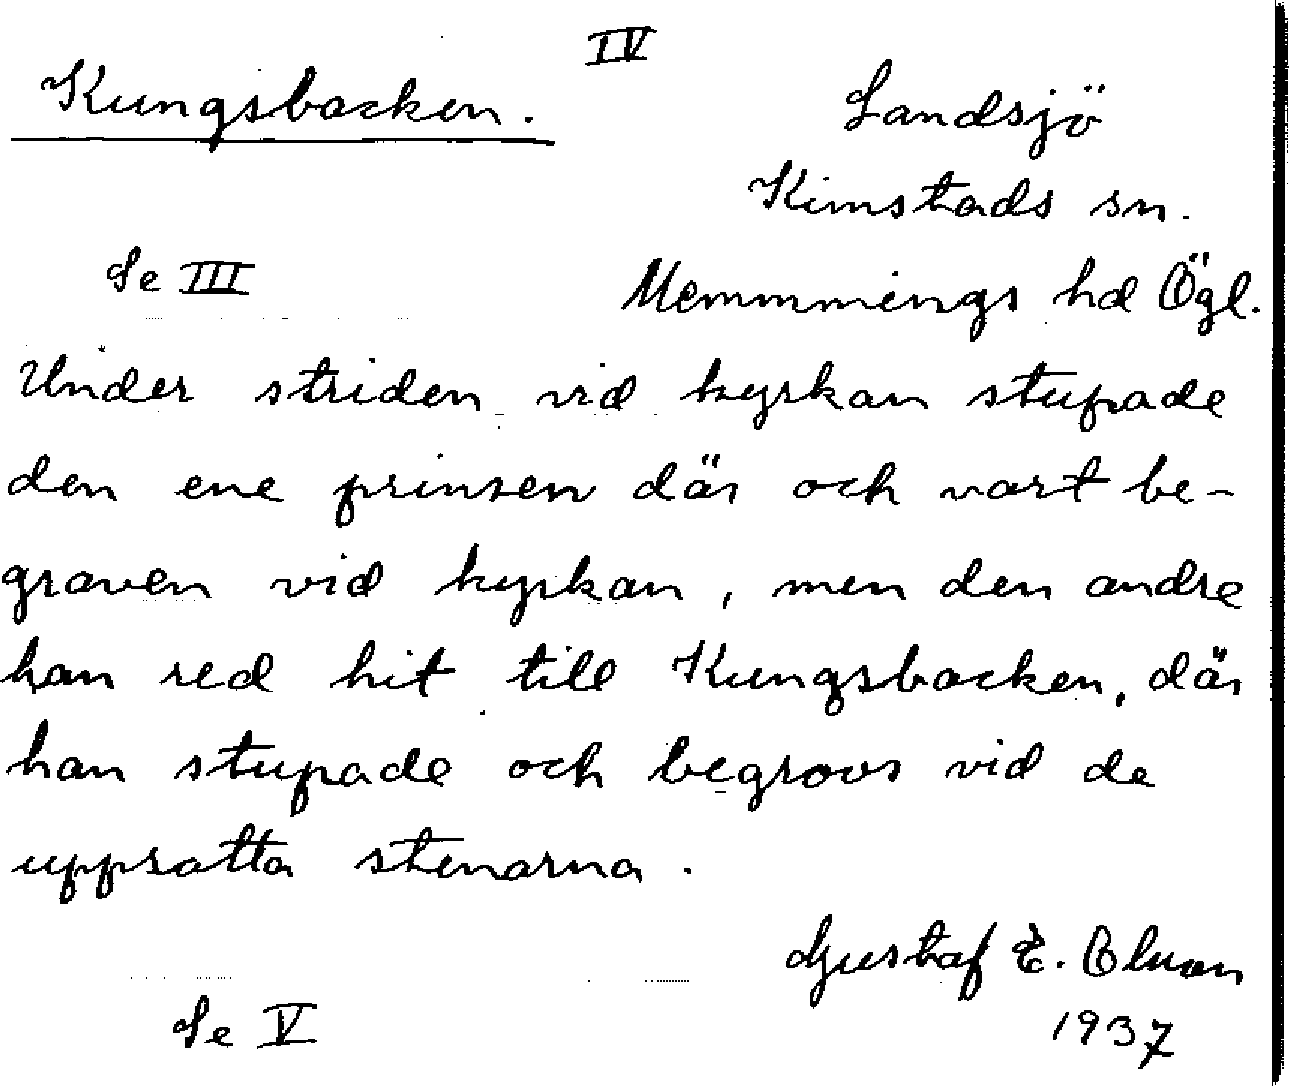 IV
Kungsbacken.
Landsjö
Kimstads sn.
Se III
Memmings hd Ögl.
Under striden vid kyrkan stupade
den ene prinsen där och vart be-
graven vid kyrkan, men den andre
han red hit till Kungsbacken, där
han stupade och begrovs vid de
uppsatta stenarna.
Gustaf E. Olsson
1937
Se V